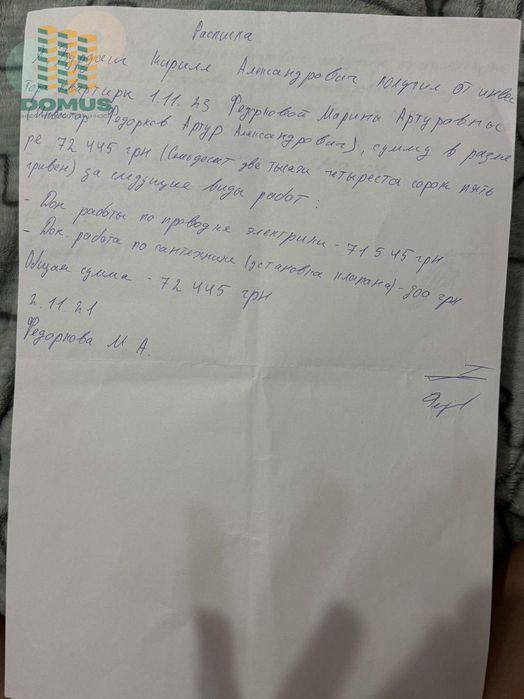 Расписка
Я Кирилл Александрович получил от инвес
тора квартиры 1.11.43 Федорковой Марины Артуровны
DOMUS
(Инвестор Федорков Артур Александрович), сумму в разме
ре 72 445 грн (Семьдесят две тысячи четыреста сорок пять
гривен) за следущие виды работ:
- Доп. работы по проводке электрики - 71 545 грн
- Доп. работа по сантехнике (установка клапана) - 900 грн
Общая сумма - 72 445 грн
2.11.21
Федоркова М А.